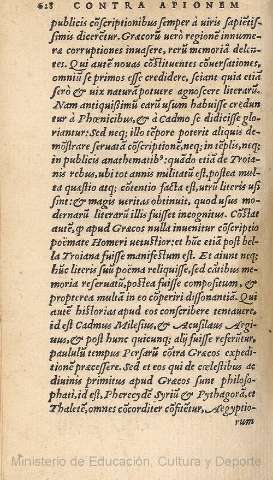 628 CONTRA APIONEM
publicis cōscriptionibus semper à viris sapiētis-
simis dicerētur. Græcorū verò regionē innume-
ræ corruptiones inuasere, rerū memoriā delen-
tes. Qui autē nouas cōstituentes cōuersationes,
omniū se primos esse credidere, sciant quia etiā
serò & vix naturā potuere agnoscere literarū.
Nam antiquissimū earū usum habuisse credun
tur à Phœnicibus, & à Cadmo se didicisse glo-
riantur. Sed neq; illo tēpore poterit aliquis de-
mōstrare seruatā cōscriptionē, neq; in tēplis, neq;
in publicis anathematib⁹: quādo etiā de Troia-
nis rebus, ubi tot annis militatū est, postea mul-
tea quæstio atq; cōtentio facta est, utrū literis usi
sint: & magis veritas obtinuit, quod usus mo-
dernarū literarū illis fuisset incognitus. Cōstat
autē, q apud Græcos nulla inuenitur cōscriptio
poëmate Homeri vetustior: et hūc etiā post bel-
la Troiana fuisse manifestum est. Et aiunt neq;
hūc literis suū poëma reliquisse, sed cātibus me-
moria reseruatū, postea fuisse compositum, &
propterea multā in eo cōperiri dissonantiā. Qui
autē historias apud eos conscribere tentauere,
id est Cadmus Milesius, & Acusilaus Argi-
uus, & post hunc quicunq; alij fuisse referūtur,
paululū tempus Persarū cōtra Græcos expedi-
tionē præcessere. Sed et eos qui de cœlestibus ac
diuinis primitus apud Græcos sunt philoso-
phati, id est, Pherecydē Syriū & Pythagorā, et
Thaletē, omnes cōcorditer cōfitētur, Aegyptio-
rum
Ministerio de Educación, Cultura y Deporte